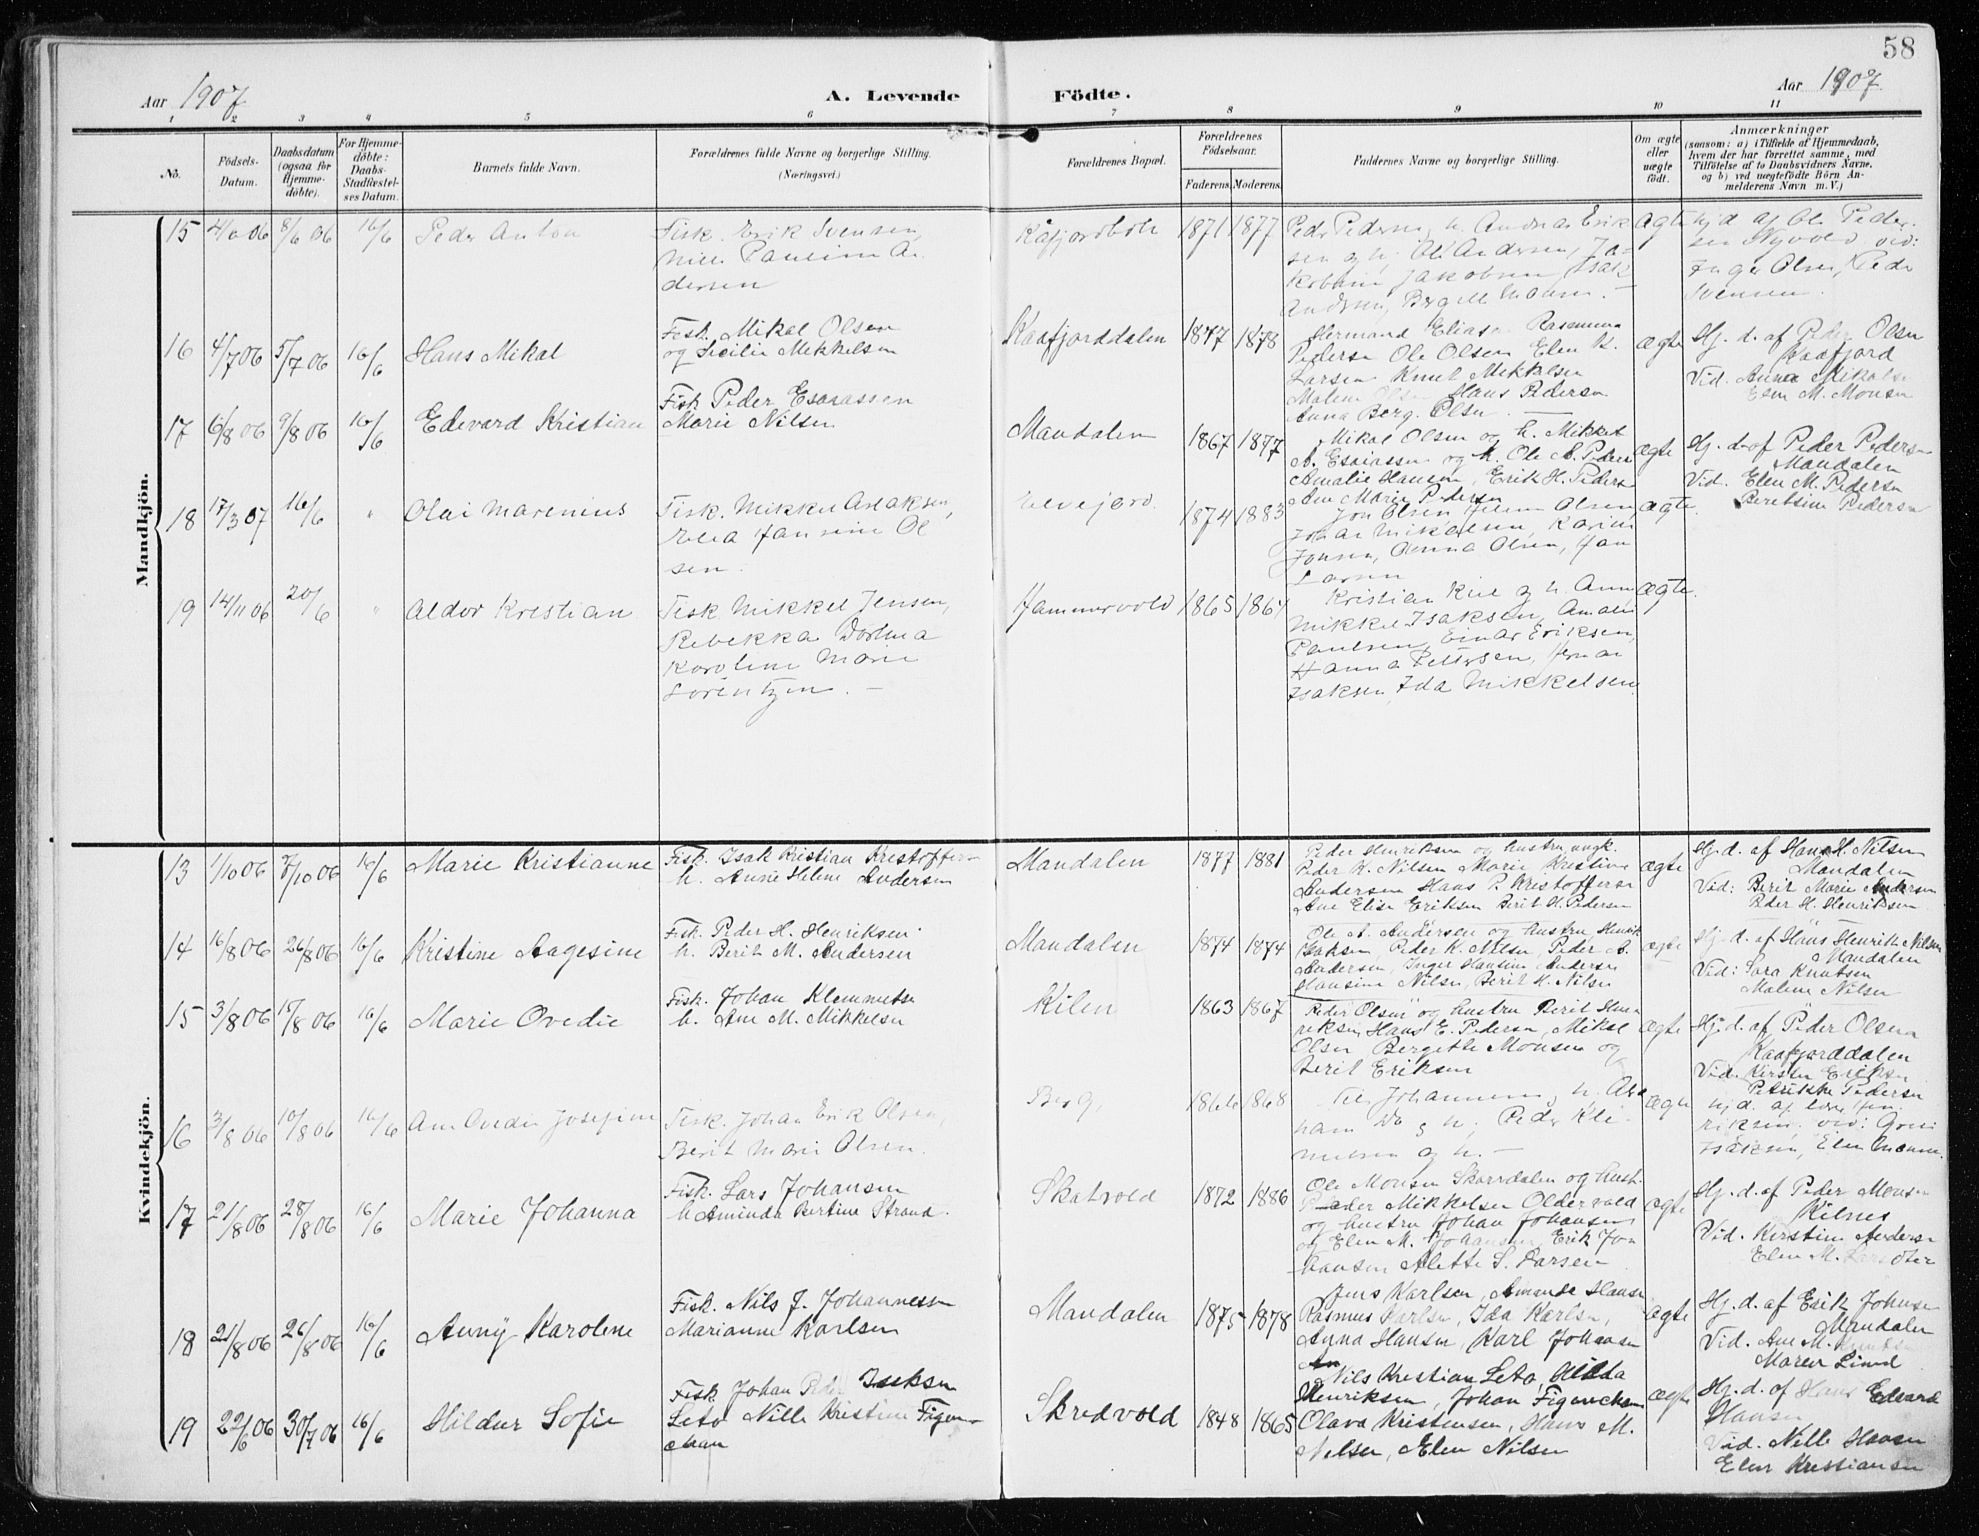 58
Aar 1907
A. Levende Födte.
Aar 1907
1 2 3 4 5 6 7 8 9 10 11
No.
Födsels-
Datum.
Daabsdatum
(ogsaa for
Hjemme-
döbte).
For Hjemme-
döbte:
Daabs-
Stadfæstel-
ses Datum.
Barnets fulde Navn.
Forældrenes fulde Navne og borgerlige Stilling.
(Næringsvei.)
Forældrenes Bopæl.
Forældrenes
Födselsaar.
Faderens. Moderens.
Faddernes Navne og borgerlige Stilling.
Om ægte
eller
uægte
födt.
Anmærkninger
(saasom: a) i Tilfælde af Hjemmedaab,
hvem der har forrettet samme, med
Tilföielse af to Daabsvidners Navne,
og b) ved uægtefödte Börn An-
melderens Navn m. V.)
Mandkjön.
15 4/6 06 8/6 06 16/6 Peder Anton
Fisk. Erik Svensen,
Paulina An
dersen
Kåfjordbotn 1871 1877
Peder Pedersen, h. Andreas Erik
sen og h. Ole Andersen, Ja-
kobine Jakobsen, Isak
Andersen, Bergitte Monsen. —
Ægte
hjd af Ole Peder-
sen Nyvold vid:
Inger Olsen, Peder
Svensen.
16 4/7 06 5/7 06 16/6 Hans Mikal
Fisk. Mikal Olsen
og Sicilie Mekkelsen
Kaafjorddalen 1877 1878
Hermand Eliasen Rasmus
Pedersen Ole Olsen Elen K.
Larsen Knut Mekkelsen
Malene Olsen Hans Pedersen
Anna Berg. Olsen —
ægte
Hj. d. af Peder Olsen
Kaafjord
Vid. Anna Mikalse
Elen M. Monsen
17 6/8 06 9/8 06 16/6 Edevard Kristian
Fisk Peder Esaiassen
Marie Nilsen
Mandalen 1867 1877
Mikal Olsen og h. Mikkel
A. Esaiassen og h. Ole A. Peders
Amalie Hansen, Erik H. Peders
Ane Marie Pedersen
ægte
Hj. d. af Peder Pedersen
Mandalen
Vid. Elen M. Pedersen
Beretsine Pedersen
18 17/3 07 16/6 " Olai Marenius
Fisk. Mikkel Aslaksen,
Elea Hansine Ol
sen.
Elvejord. 1874 1883
Jon Olsen, Elen Olsen
Johan Mikalsen, Karin
Jonsen, Olenna Olsen, Han
Larsen
ægte.
19 14/11 06 20/6 " Aldor Kristian
Fisk Mikkel Jensen,
Rebekka Dortma
Karoline Marie
Lorentzen. —
Hammervold 1865 1867
Kristian Kiil og h. Anne
Mikkel Isaksen, Amalie
Paulsen, Einar Eriksen,
Hanna Pettersen,
Isaksen, Ida Mikkelsen
Ægte.
Kvindekjön.
13 1/10 06 7/10 06 16/6 Marie Kristianne
Fisk. Isak Kristian Krestoffersn
h. Anne Helene Andersen
Mandalen 1877 1881
Peder Henriksen og hustru ungk.
Peder K. Nilsen Marie Kristine
Andersen Hans P. Krestoffersn
Ane Elise Eriksen Berit H. Pedersen
ægte
Hj. d. af Hans H. Nilsen
Mandalen
Vid: Berit Marie Andersen
Peder H. Henriksen
14 16/8 06 26/8 06 16/6 Kristine Aagesine
Fisk. Peder H. Henriksen
h. Berit M. Andersen
Mandalen 1874 1874
Ole A. Andersen og hustru Henrik
Isaksen, Peder K. Nilsen, Peder A.
Andersen, Inger Hansine Andersn
Hansine Nilsen, Berit K. Nilsen
ægte
Hj. d. af Hans Henrik Nilsen
Mandalen
Vid: Sara Knutsen
Malene Nilsen
15 3/8 06 15/8 06 16/6 Marie Ovedie
Fisk. Johan Klemmetsn
h. Ane M. Mikkelsen
Kilen 1863 1867
Peder Olsen og hustru Berit Hen
riksen, Hans E. Pedersen, Mikal
Olsen Bergette Monsen og
Berit Eriksen
ægte
Hj. d. af Peder Olsen
Kaafjorddalen
Vid. Kersten Eriksn
Petrikke Pedersen
16 3/8 06 10/8 06 16/6 Ane Ovedie Josefine
Fisk. Johan Erik Olsen,
Berit Marie Olsen.
Berg, 1866 1868
Johannesen, h. Abra
ham Do og h; Peder Kle-
metsen og h. —
ægte
hjd. af Lars Hen
riksen. vid: Grete
Isaksen, Elen Monsen.
17 21/8 06 28/8 06 16/6 Marie Johanna
Fisk. Lars Johansen
h. Aminda Bertine Strand.
Skatvold 1872 1886
Ole Monsen Skardalen og hust.
Peder Mikkelsen Oldervold
og hustru Johan Johansen
og Elen M. Johansen, Erik Jo-
hansen Alette S. Larsen
ægte
Hj. d. af Peder Monsen
Kilnes
Vid. Kerstine Andersn
Elen M.
18 21/8 06 26/8 06 16/6 Anny Karolene
Fisk. Nils J. Johannessen
Marianne Karlsen
Mandalen 1875 1878
Jens Karlsen, Amande Hansn
Rasmus Karlsen, Ida Karlsn,
Anna Hansen, Karl Johansen
ægte
Hj. d. af Erik Johnse
Mandalen
Vid. Ane M. Knutsn
Maren Lund
19 22/6 06 30/7 06 16/6 Hildur Sofie
Fisk Johan Peder Isaksen
Leto Nille Kristine Figen-
chau
Skredvold 1848 1865
Nils Krestian Leto, Hilda
Henriksen, Johan Figenchau
Olava Kristensen, Hans M.
Nilsen, Elen Nilsen
ægte
Hj. d. af Hans Edvard
Hansen
Vid. Nille Hansen
Elen Krestiansen